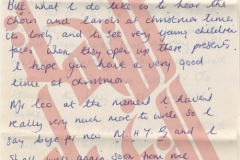 But what I do like is to hear the
choir and carols at christmas time
its lovely and to see very young children
faces when they open up there presents.
I hope you have a very good
time at christmas.
Mr Leo at the moment I havent
really very much more to write so I
say bye for now and I
shall write again soon from me